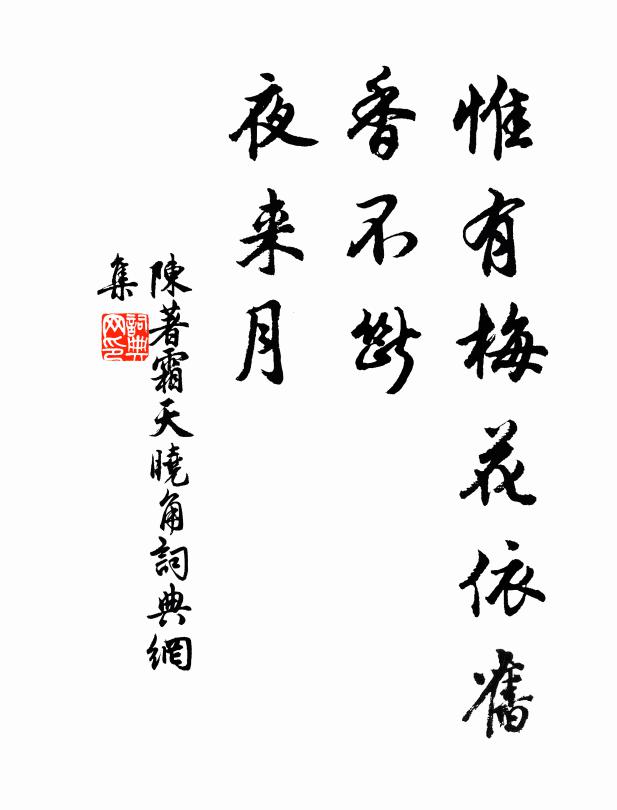 惟有梅花依舊
香不斷
夜来月
陳著霜天曉角詞典網
集
詞典
网印